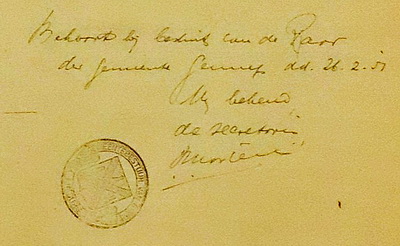 Behoort bij besluit van de Raad
der gemeente Gennep d.d. 26.2.51
Mij bekend,
de secretaris